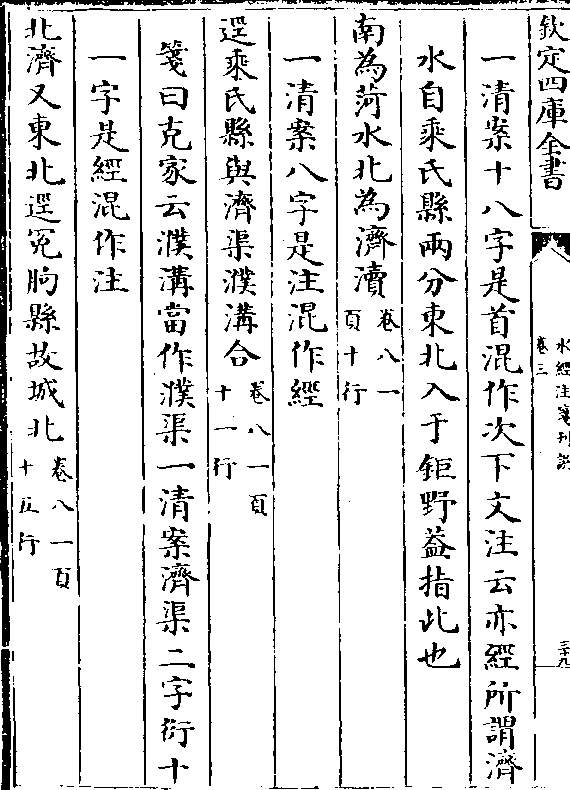 欽定四庫全書
水經注箋刊誤
卷三
三十九
一清案十八字是首混作次下文注云亦經所謂濟
水自乘氏縣兩分東北入于鉅野葢指此也
南為菏水北為濟瀆卷八一頁十行
一清案八字是注混作經
逕乘氏縣與濟渠濮溝合卷八一頁十一行
箋曰克家云濮溝當作濮渠一清案濟渠二字衍十
一字是經混作注
北濟又東北逕冤朐縣故城北卷八一頁十五行